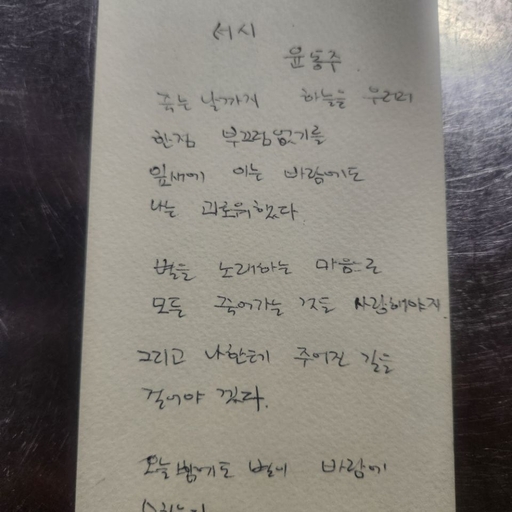 서시
윤동주
죽는 날까지 하늘을 우러러
한점 부끄럼 없기를
잎새에 이는 바람에도
나는 괴로워했다.
별을 노래하는 마음으로
모든 죽어가는 것을 사랑해야지
그리고 나한테 주어진 길을
걸어야 겠다.
오늘 밤에도 별이 바람에